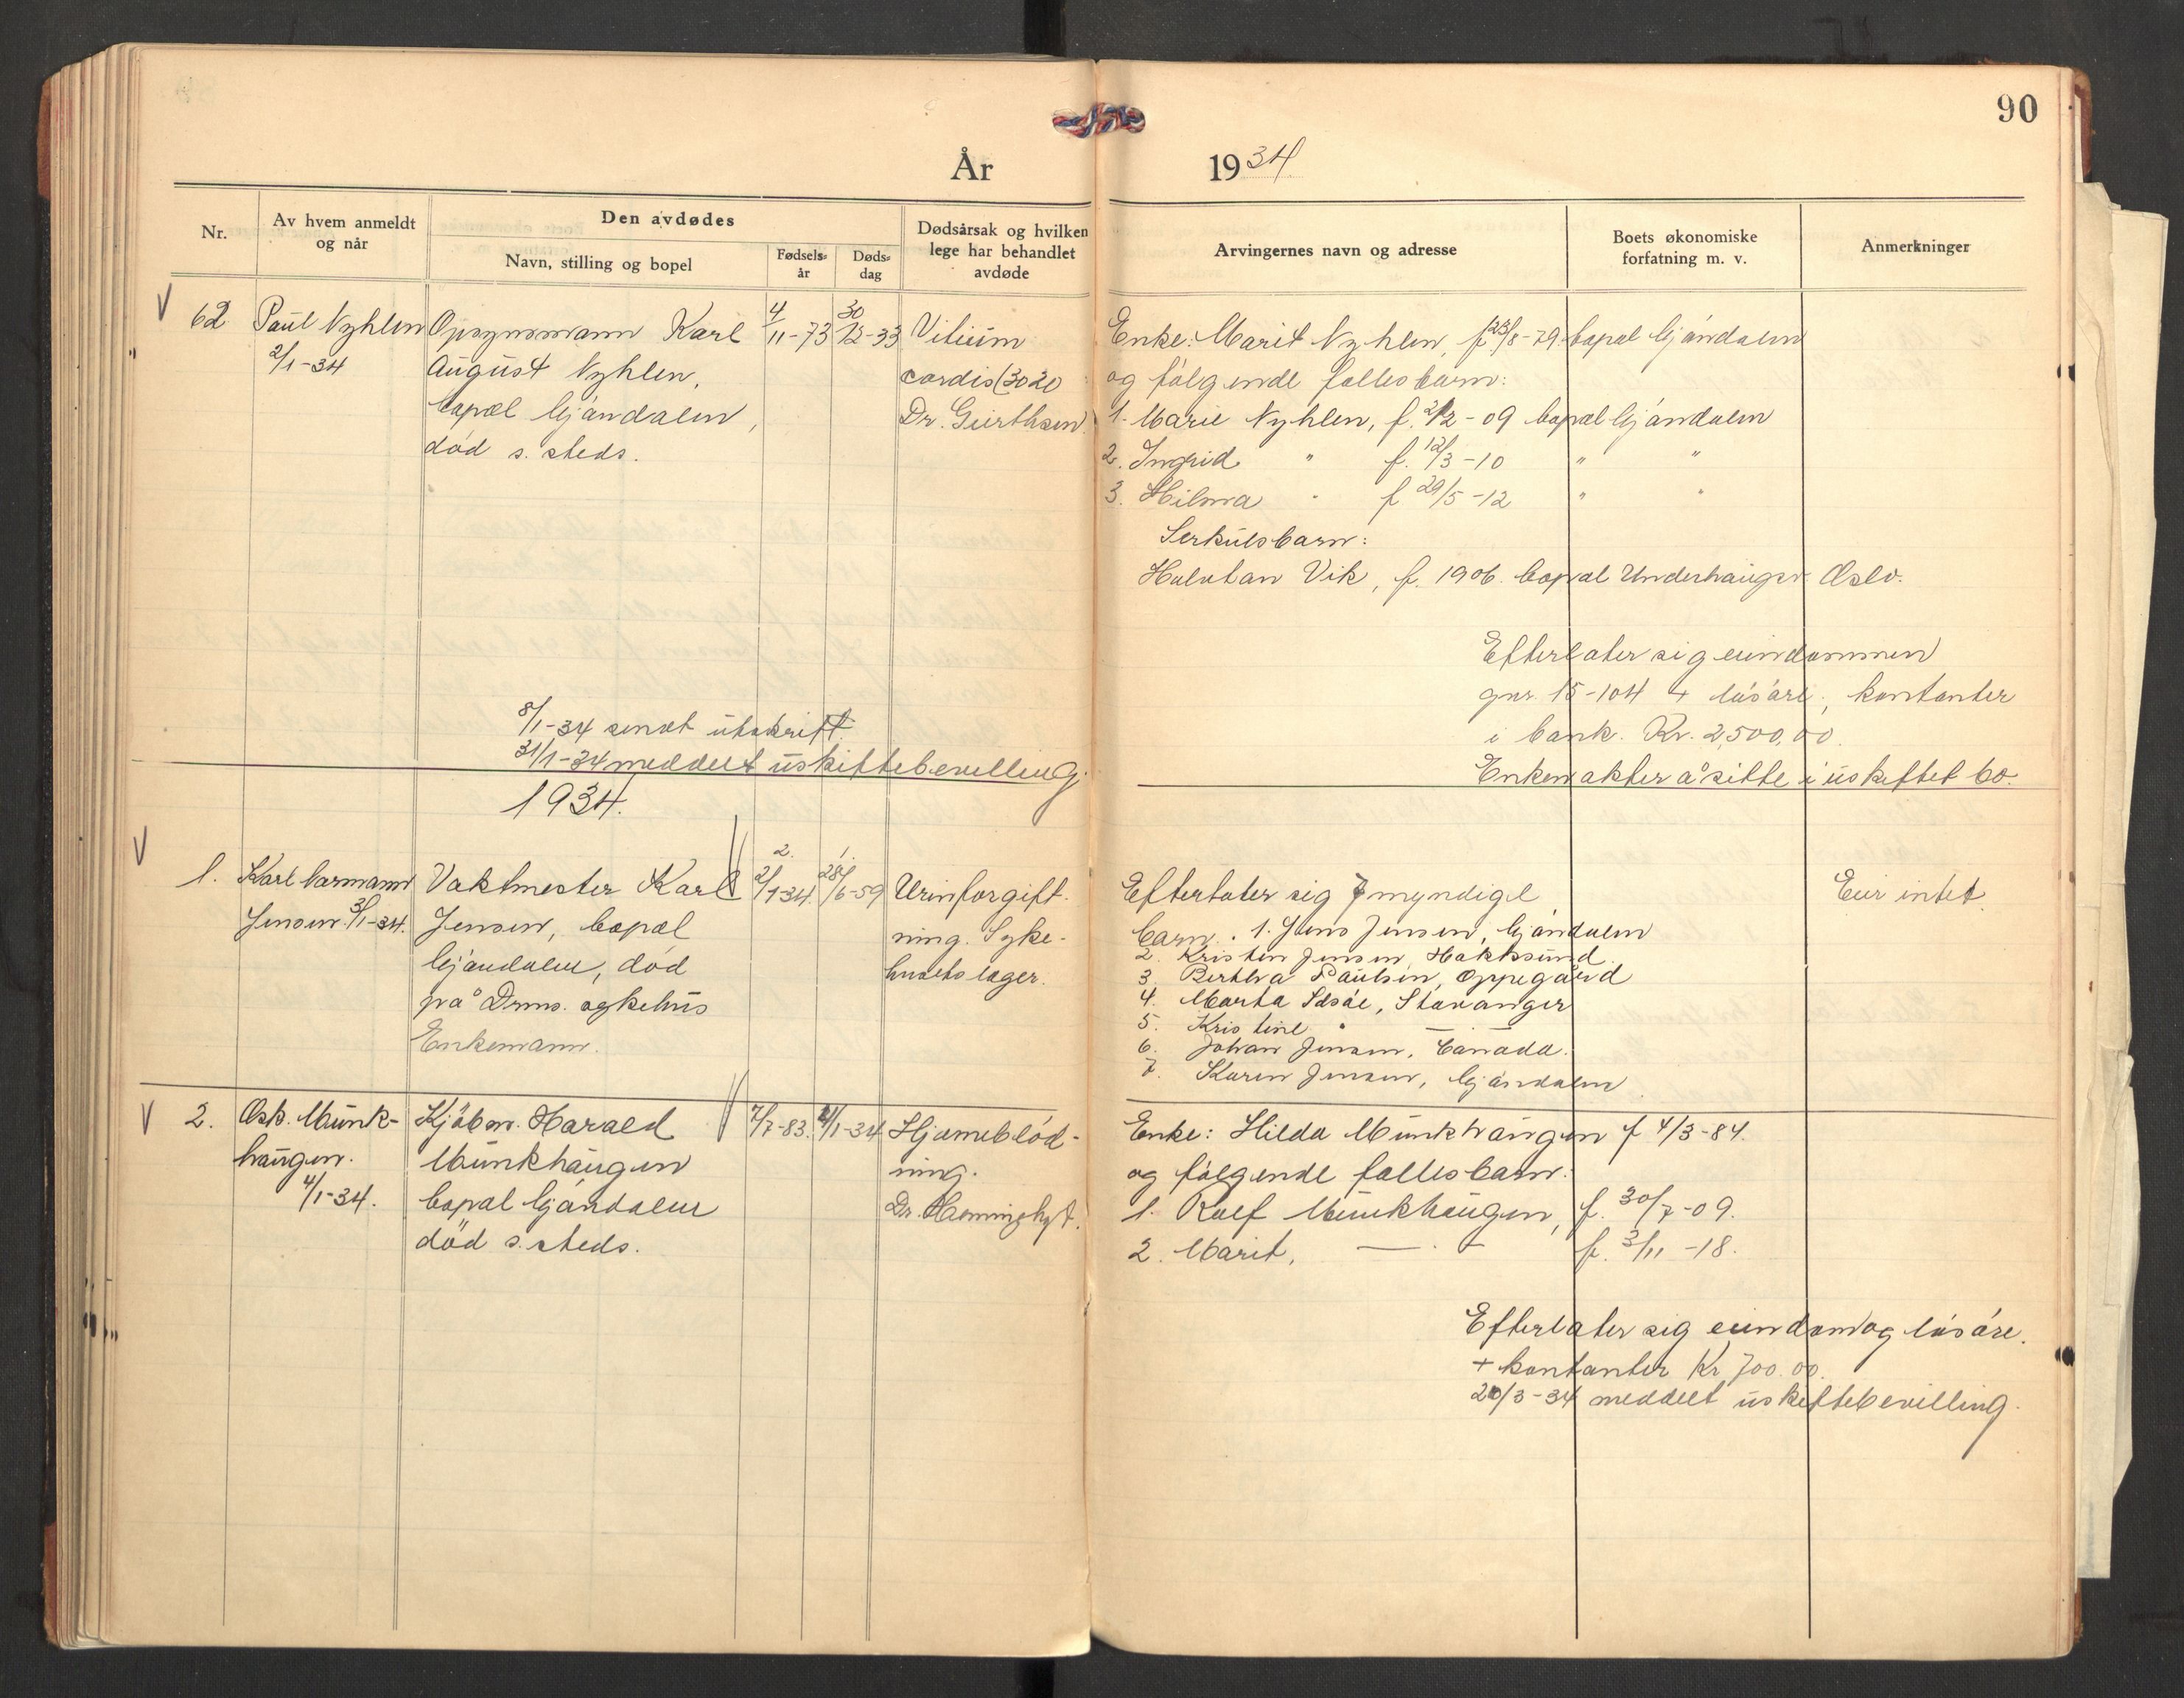 90
År 1934
Nr.
Av hvem anmeldt og når
Den avdødes
Navn, stilling og bopel
Fødsels- år
Døds- dag
Dødsårsak og hvilken lege har behandlet avdøde
Arvingernes navn og adresse
Boets økonomiske forfatning m. v.
Anmerkninger
V 62 Paul Nyhlen
2/1-34
Opsynsmann Karl
August Nyhlen,
bopæl Mjøndalen,
død s. steds.
4/11-73
30/12-33
Vitium
cordis (3020
Dr. Gurthsen
Enke: Marit Nyhlen, f 23/8-79 bopæl Mjøndalen
og følgende fellesbarn:
1. Marie Nyhlen, f. 21/2-09 bopæl Mjøndalen
2. Ingrid " f. 12/3-10 " "
3. Hilma " f 29/5-12 " "
Særkulsbarn:
Halvtan Vik, f. 1906. bopæl Underhaugsv. Oslo.
Efterlater sig eiendommen
gnr. 15-104 + løsøre, kontanter
i bank. Kr. 2,500,00.
Enken akter å sitte i uskiftet bo.
8/1-34 sendt utskrift.
31/1-34 meddelt uskiftebevilling.
1934.
V 1. Karl Narmann
Jensen. 3/1-34.
Vaktmester Karl
Jensen, bopæl
Mjøndalen, død
på Drms. sykehus
Enkemann.
2.
2/1-34.
1.
28/6-59
Urinforgift-
ning. Syke-
husets læger.
Efterlater sig 7 myndige
barn. 1. Jens Jensen, Mjøndalen
2. Kristen Jensen, Hokksund.
3. Berthea Paulsen, Oppegård
4. Marta Idsøe, Stavanger
5. Kristine " —
6. Johan Jensen, Canada.
7. Karen Jensen, Mjøndalen
Eier intet.
V 2. Osk. Munk-
haugen.
4/1-34.
Kjøbm. Harald
Munkhaugen
bopæl Mjøndalen
død s. steds.
7/7-83.
2/1-34
Hjerneblød-
ning.
Dr. Heminghyt.
Enke: Hilda Munkhaugen f 4/3-84.
og følgende fellesbarn:
1. Rolf Munkhaugen, f. 30/7-09.
2. Marit, — " — f. 3/11-18.
Efterlater sig eiendom og løsøre.
+ kontanter Kr 700.00.
20/3-34 meddelt uskiftebevilling.